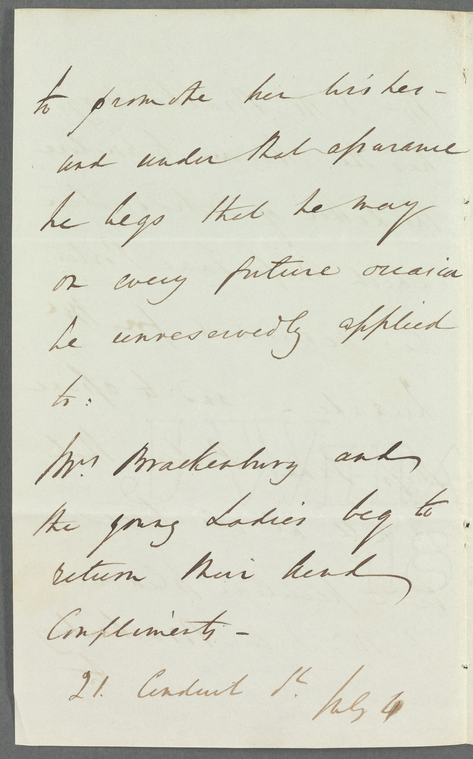 to promote her wishes -
and under that assurance
he begs that he may
on every future occasion
be unreservedly applied
to:
Mrs Brackenbury and
the young Ladies beg to
return their kind
Compliments -
21. Conduit St. July 4